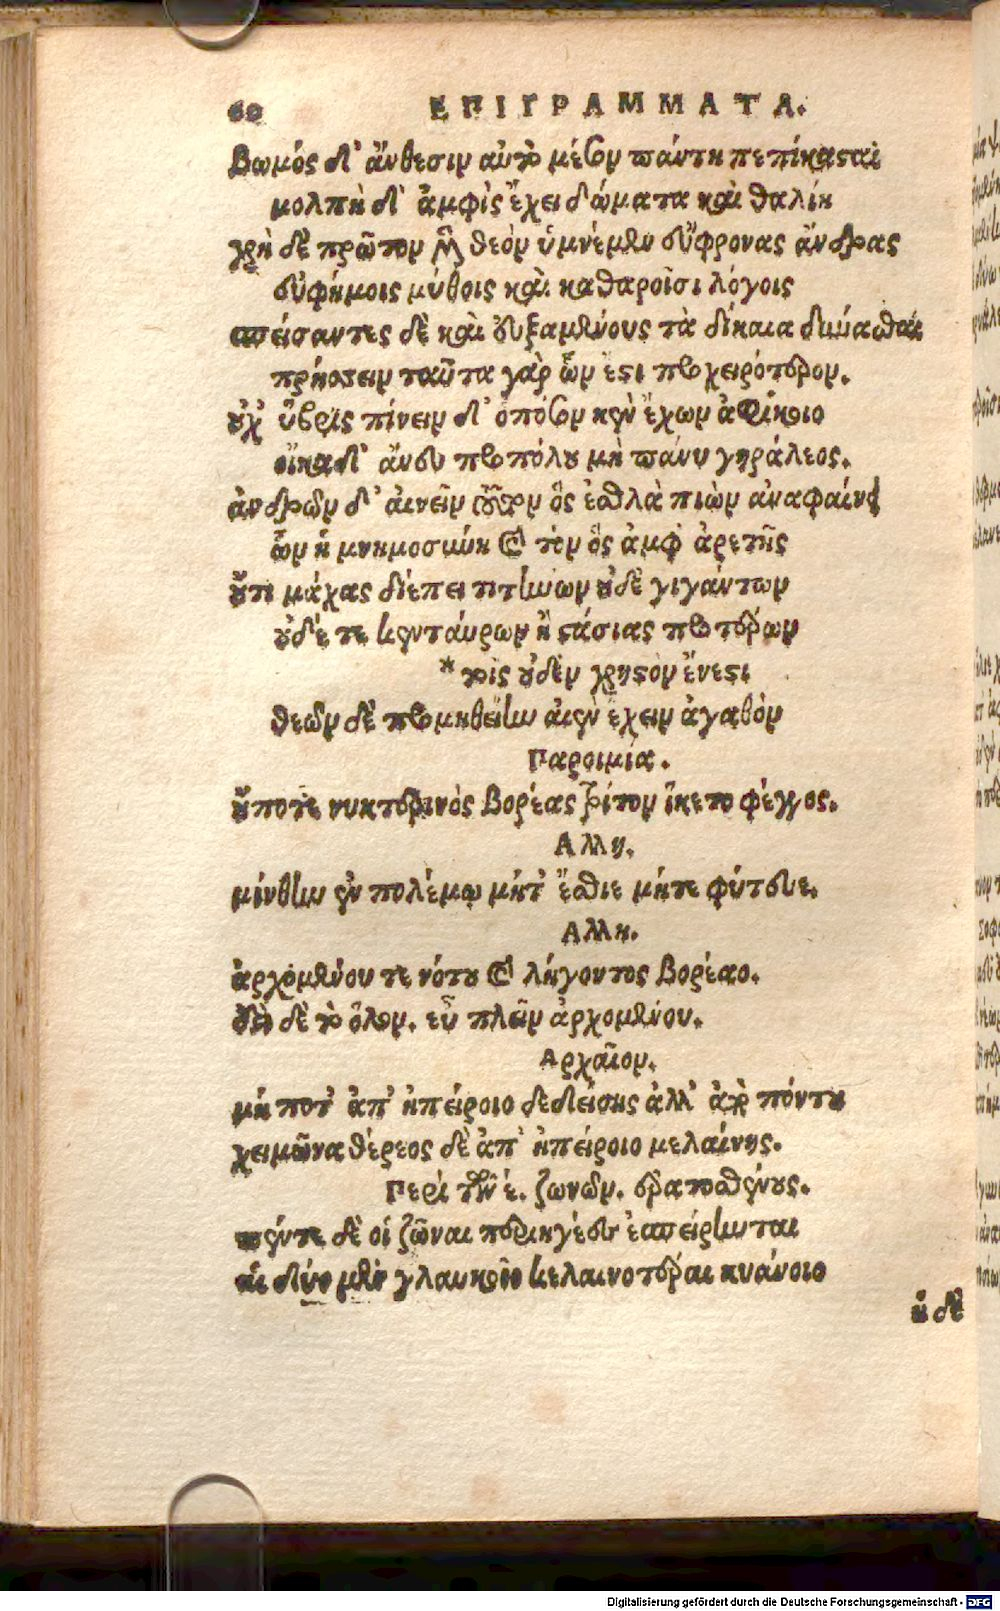 60 ΕΠΙΓΡΑΜΜΑΤΑ.
Βωμός δ' ἄνθεσιν αὐτὸ μέσον πάντη πεπύκασται
μολπὴ δ' ἀμφὶς ἔχει δώματα καὶ θαλίη
χρὴ δὲ πρῶτον μὲν θεὸν ὑμνέμεν εὔφρονας ἄνδρας
εὐφήμοις μύθοις καὶ καθαροῖσι λόγοις
σπείσαντες δὲ καὶ εὐξαμένους τὰ δίκαια δύνασθαι
πρήσσειν ταῦτα γὰρ ὦν ἐστι προχειρότερον.
οὐχ ὕβρις πίνειν δ' ὁπόσον κεν ἔχων ἀφίκοιο
οἴκαδ' ἄνευ προπόλου μὴ πάνυ γηράλεος.
ἀνδρῶν δ' αἰνεῖν τοῦτον ὃς ἐσθλὰ πιὼν ἀναφαίνει
ὧν ἡ μνημοσύνη καὶ τὸν ὃς ἀμφ' ἀρετῆς
οὔτι μάχας διέπει τιτήνων οὐδὲ γιγάντων
οὐδέ τε κενταύρων ἢ στάσιας προτέρων
* τοῖς οὐδὲν χρηστὸν ἔνεστι
θεῶν δὲ προμηθείην αἰὲν ἔχειν ἀγαθὸν
Παροιμία.
οὔποτε νυκτερινὸς βορέας τρίτον ἵκετο φέγγος.
Αλλη.
μίνθην ἐν πολέμῳ μήτ' ἔσθιε μήτε φύτευε.
Αλλη.
ἀρχομένου τε νότου καὶ λήγοντος βορέαο.
δεῖ δὲ τὸ ὅλον. εὖ πλεῖν ἀρχομένου.
Αρχαῖον.
μή ποτ' ἀπ' ἠπείροιο δεδείσης ἀλλ' ἀπὸ πόντου
χειμῶνα θέρεος δὲ ἀπ' ἠπείροιο μελαίνης.
Περὶ τῶν έ. ζωνῶν. ἐρατοσθένους.
πέντε δὲ οἱ ζῶναι περιηγέες ἐσπείρηνται
αἱ δύο μὲν γλαυκοῖο κελαινότεραι κυάνοιο
ἡ δὲ
Digitalisierung gefördert durch die Deutsche Forschungsgemeinschaft - DFG